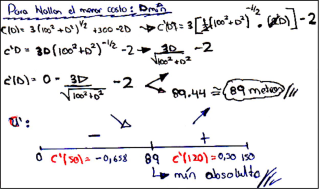 Para Hallar el menor costo: Dmín
C(D) = 3(100²+D²)^1/2 + 300-2D → C'(D) = 3[1/2(100²+D²)^-1/2 · (2D)] - 2
C'D = 3D(100²+D²)^-1/2 - 2 → 3D/√100²+D² - 2
C'(D) = 0 - 3D/√100²+D² - 2
89.44 ≅ 89 metros
C':
- +
0 C'(50) = -0,658 89 C'(120) = 0,30 150
↳ mín absoluto